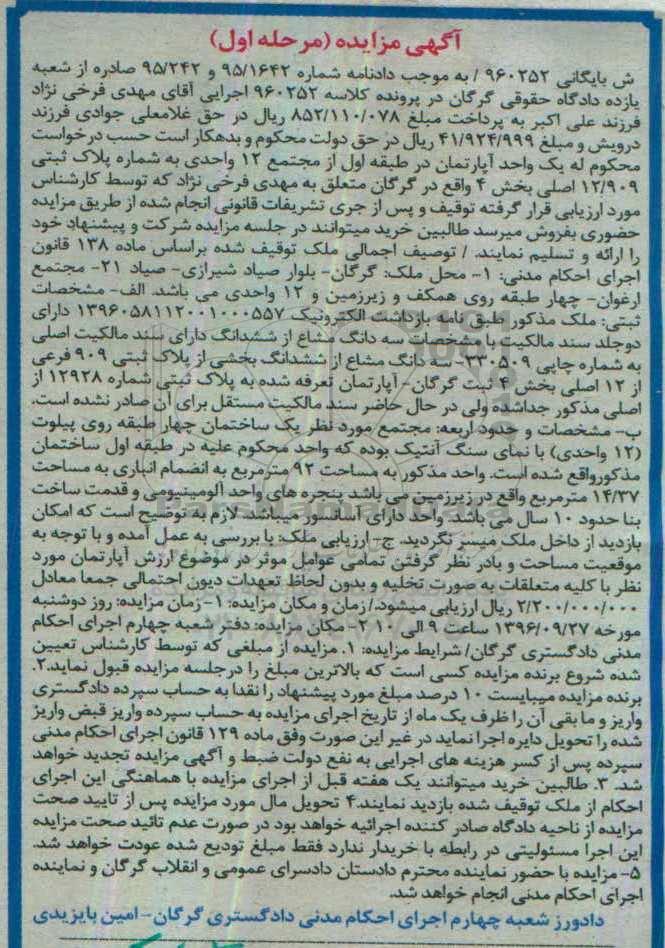 آگهی مزایده (مرحله اول)
ش بایگانی ۹۶۰۲۵۲ / به موجب دادنامه شماره ۹۵/۱۶۴۲ و ۹۵/۲۴۲ صادره از شعبه
یازده دادگاه حقوقی گرگان در پرونده کلاسه ۹۶۰۲۵۲ اجرایی آقای مهدی فرخی نژاد
فرزند علی اکبر به پرداخت مبلغ ۸۵۲/۱۱۰/۰۷۸ ریال در حق غلامعلی جوادی فرزند
درویش و مبلغ ۴۱/۹۲۴/۹۹۹ ریال در حق دولت محکوم و بدهکار است حسب درخواست
محکوم له یک واحد آپارتمان در طبقه اول از مجتمع ۱۲ واحدی به شماره پلاک ثبتی
۱۲/۹۰۹ اصلی بخش ۴ واقع در گرگان متعلق به مهدی فرخی نژاد که توسط کارشناس
مورد ارزیابی قرار گرفته توقیف و پس از جری تشریفات قانونی انجام شده از طریق مزایده
حضوری بفروش میرسد طالبین خرید میتوانند در جلسه مزایده شرکت و پیشنهاد خود
را ارائه و تسلیم نمایند. / توصیف اجمالی ملک توقیف شده براساس ماده ۱۳۸ قانون
اجرای احکام مدنی: ۱- محل ملک: گرگان- بلوار صیاد شیرازی- صیاد ۲۱- مجتمع
ارغوان- چهار طبقه روی همکف و زیرزمین و ۱۲ واحدی می باشد. الف- مشخصات
ثبتی: ملک مذکور طبق نامه بازداشت الکترونیک ۱۳۹۶۰۵۸۱۱۲۰۰۱۰۰۰۵۵۷ دارای
دوجلد سند مالکیت با مشخصات سه دانگ مشاع از ششدانگ دارای سند مالکیت اصلی
به شماره چاپی ۳۳۰۵۰۹- سه دانگ مشاع از ششدانگ بخشی از پلاک ثبتی ۹۰۹ فرعی
از ۱۲ اصلی بخش ۴ ثبت گرگان- آپارتمان تعرفه شده به پلاک ثبتی شماره ۱۲۹۲۸ از
اصلی مذکور جداشده ولی در حال حاضر سند مالکیت مستقل برای آن صادر نشده است.
ب- مشخصات و حدود اربعه: مجتمع مورد نظر یک ساختمان چهار طبقه روی پیلوت
(۱۲ واحدی) با نمای سنگ آنتیک بوده که واحد محکوم علیه در طبقه اول ساختمان
مذکورواقع شده است. واحد مذکور به مساحت ۹۲ مترمربع به انضمام انباری به مساحت
۱۴/۳۷ مترمربع واقع در زیرزمین می باشد پنجره های واحد آلومینیومی و قدمت ساخت
بنا حدود ۱۰ سال می باشد. واحد دارای آسانسور میباشد. لازم به توضیح است که امکان
بازدید از داخل ملک میسر نگردید. ج- ارزیابی ملک: با بررسی به عمل آمده و با توجه به
موقعیت مساحت و بادر نظر گرفتن تمامی عوامل موثر در موضوع ارزش آپارتمان مورد
نظر با کلیه متعلقات به صورت تخلیه و بدون لحاظ تعهدات دیون احتمالی جمعا معادل
۲/۲۰۰/۰۰۰/۰۰۰ ریال ارزیابی میشود./ زمان و مکان مزایده: ۱- زمان مزایده: روز دوشنبه
مورخه ۱۳۹۶/۰۹/۲۷ ساعت ۹ الی ۱۰ ۲- مکان مزایده: دفتر شعبه چهارم اجرای احکام
مدنی دادگستری گرگان/ شرایط مزایده: ۱. مزایده از مبلغی که توسط کارشناس تعیین
شده شروع برنده مزایده کسی است که بالاترین مبلغ را درجلسه مزایده قبول نماید.۲.
برنده مزایده میبایست ۱۰ درصد مبلغ مورد پیشنهاد را نقدا به حساب سپرده دادگستری
واریز و ما بقی آن را ظرف یک ماه از تاریخ اجرای مزایده به حساب سپرده واریز قبض واریز
شده را تحویل دایره اجرا نماید در غیر این صورت وفق ماده ۱۲۹ قانون اجرای احکام مدنی
سپرده پس از کسر هزینه های اجرایی به نفع دولت ضبط و آگهی مزایده تجدید خواهد
شد. ۳. طالبین خرید میتوانند یک هفته قبل از اجرای مزایده با هماهنگی این اجرای
احکام از ملک توقیف شده بازدید نمایند.۴ تحویل مال مورد مزایده پس از تایید صحت
مزایده از ناحیه دادگاه صادر کننده اجرائیه خواهد بود در صورت عدم تائید صحت مزایده
این اجرا مسئولیتی در رابطه با خریدار ندارد فقط مبلغ تودیع شده عودت خواهد شد.
۵- مزایده با حضور نماینده محترم دادستان دادسرای عمومی و انقلاب گرگان و نماینده
اجرای احکام مدنی انجام خواهد شد.
دادورز شعبه چهارم اجرای احکام مدنی دادگستری گرگان- امین بایزیدی